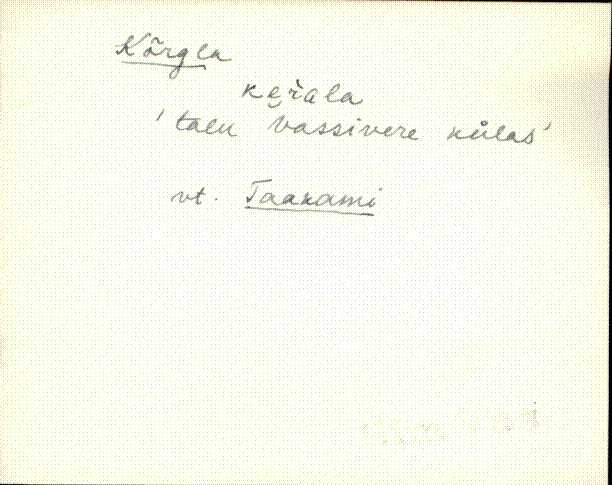 Kõrgla
ke̮r̆ala
'talu Vassivere külas'
vt. Taakami